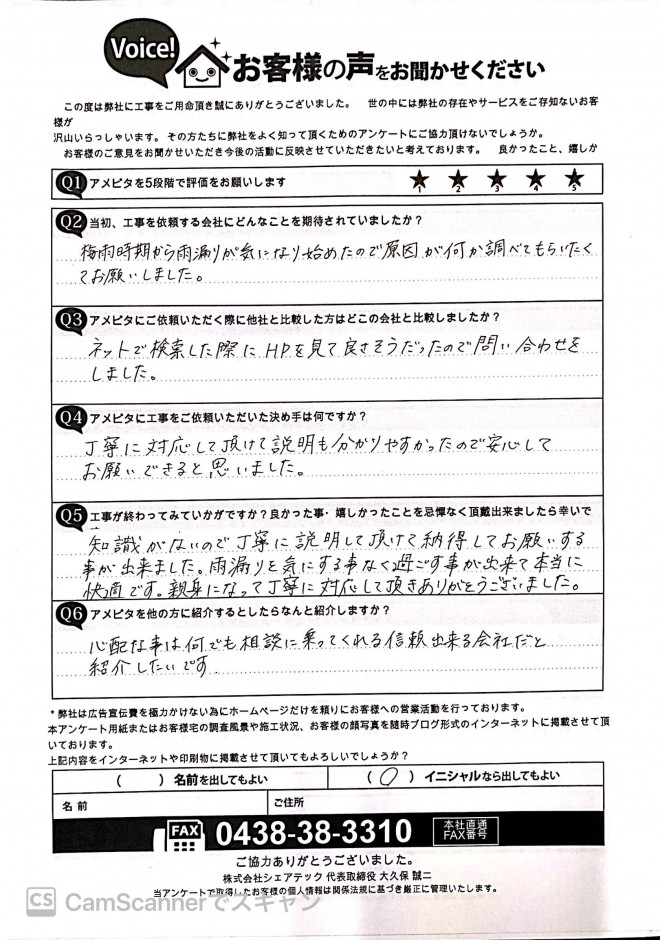 Voice!
お客様の声をお聞かせください
この度は弊社に工事をご用命頂き誠にありがとうございました。 世の中には弊社の存在やサービスをご存知ないお客
様が
沢山いらっしゃいます。その方たちに弊社をよく知って頂くためのアンケートにご協力頂けないでしょうか。
お客様のご意見をお聞かせいただき今後の活動に反映させていただきたいと考えております。 良かったこと、嬉しか
Q1 アメピタを5段階で評価をお願いします ★1 ★2 ★3 ★4 ★5
Q2 当初、工事を依頼する会社にどんなことを期待されていましたか?
梅雨時期から雨漏りが気になり始めたので原因が何か調べてもらいたく
てお願いしました。
Q3 アメピタにご依頼いただく際に他社と比較した方はどこの会社と比較しましたか?
ネットで検索した際にHPを見て良さそうだったので問い合わせを
しました。
Q4 アメピタに工事をご依頼いただいた決め手は何ですか?
丁寧に対応して頂けて説明も分かりやすかったので安心して
お願いできると思いました。
Q5 工事が終わってみていかがですか?良かった事・嬉しかったことを忌憚なく頂戴出来ましたら幸いで
知識がないので丁寧に説明して頂けて納得してお願いする
事が出来ました。雨漏りを気にする事なく過ごす事が出来て本当に
快適です。親身になって丁寧に対応して頂きありがとうございました。
Q6 アメピタを他の方に紹介するとしたらなんと紹介しますか?
心配な事は何でも相談に乗ってくれる信頼出来る会社だと
紹介したいです
*弊社は広告宣伝費を極力かけない為にホームページだけを頼りにお客様への営業活動を行っております。
本アンケート用紙またはお客様宅の調査風景や施工状況、お客様の顔写真を随時ブログ形式のインターネットに掲載させて頂
いております。
上記内容をインターネットや印刷物に掲載させて頂いてもよろしいでしょうか?
( ) 名前を出してもよい (○) イニシャルなら出してもよい
名前 ご住所
FAX 0438-38-3310 本社直通
FAX番号
ご協力ありがとうございました。
株式会社シェアテック 代表取締役 大久保 誠二
当アンケートで取得したお客様の個人情報は関係法規に基づき厳正に管理いたします。
CS CamScannerでスキャン